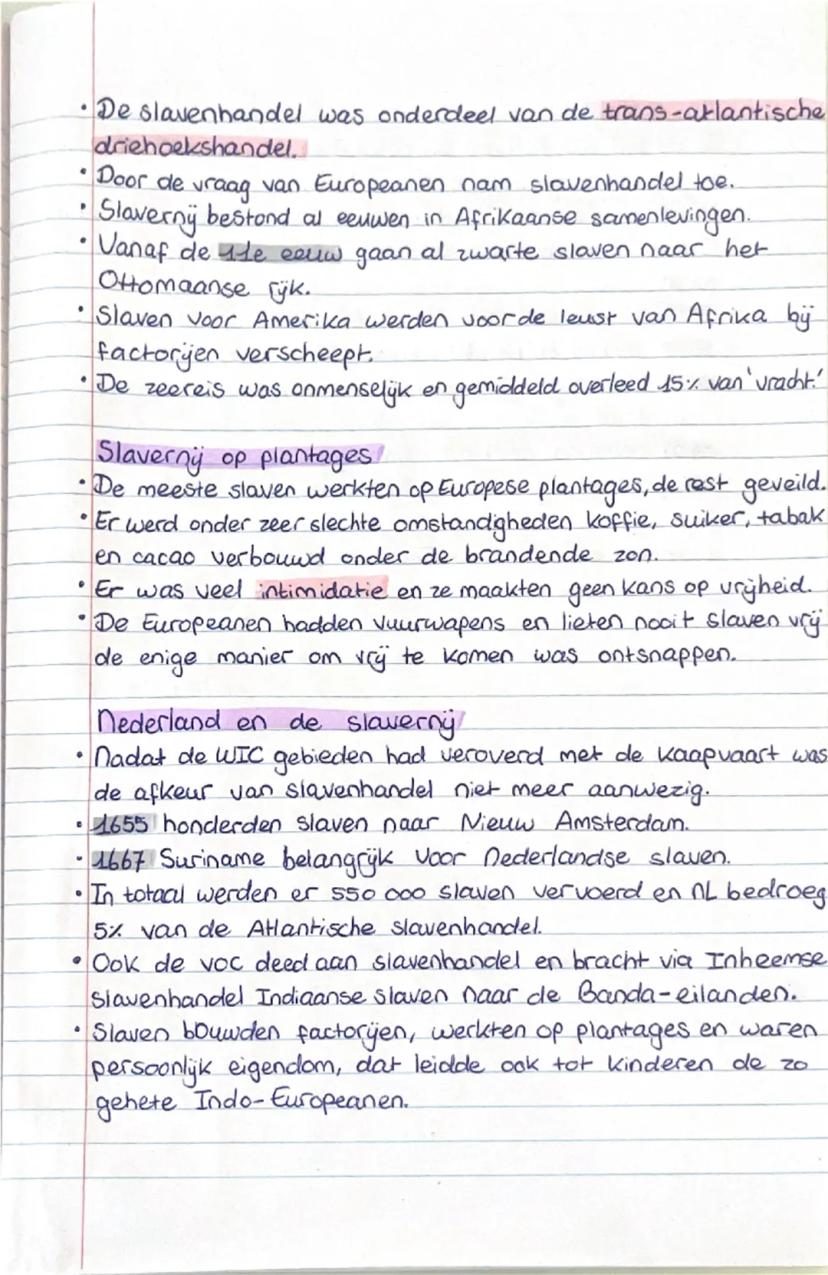 • De slavenhandel was onderdeel van de trans-atlantische
driehoekshandel.
• Door de vraag van Europeanen nam slavenhandel toe.
• Slavernij bestond al eeuwen in Afrikaanse samenlevingen.
• Vanaf de 11e eeuw gaan al zwarte slaven naar het
Ottomaanse rijk.
• Slaven voor Amerika werden voor de leust van Afrika bij
factorijen verscheept.
• De zeereis was onmenselijk en gemiddeld overleed 15% van 'vracht.'
Slavernij op plantages
• De meeste slaven werkten op Europese plantages, de rest geveild.
• Er werd onder zeer slechte omstandigheden koffie, suiker, tabak
en cacao verbouwd onder de brandende zon.
• Er was veel intimidatie en ze maakten geen kans op vrijheid.
• De Europeanen hadden vuurwapens en lieten nooit slaven vrij
de enige manier om vrij te komen was ontsnappen.
Nederland en de slavernij
• Nadat de WIC gebieden had veroverd met de kaapvaart was
de afkeur van slavenhandel niet meer aanwezig.
• 1655 honderden slaven naar Nieuw Amsterdam.
• 1667 Suriname belangrijk voor Nederlandse slaven.
• In totaal werden er 550 000 slaven vervoerd en NL bedroeg
5% van de Atlantische slavenhandel.
• Ook de VOC deed aan slavenhandel en bracht via Inheemse
slavenhandel Indiaanse slaven naar de Banda-eilanden.
• Slaven bouwden factorijen, werkten op plantages en waren
persoonlijk eigendom, dat leidde ook tot kinderen de zo
gehete Indo-Europeanen.